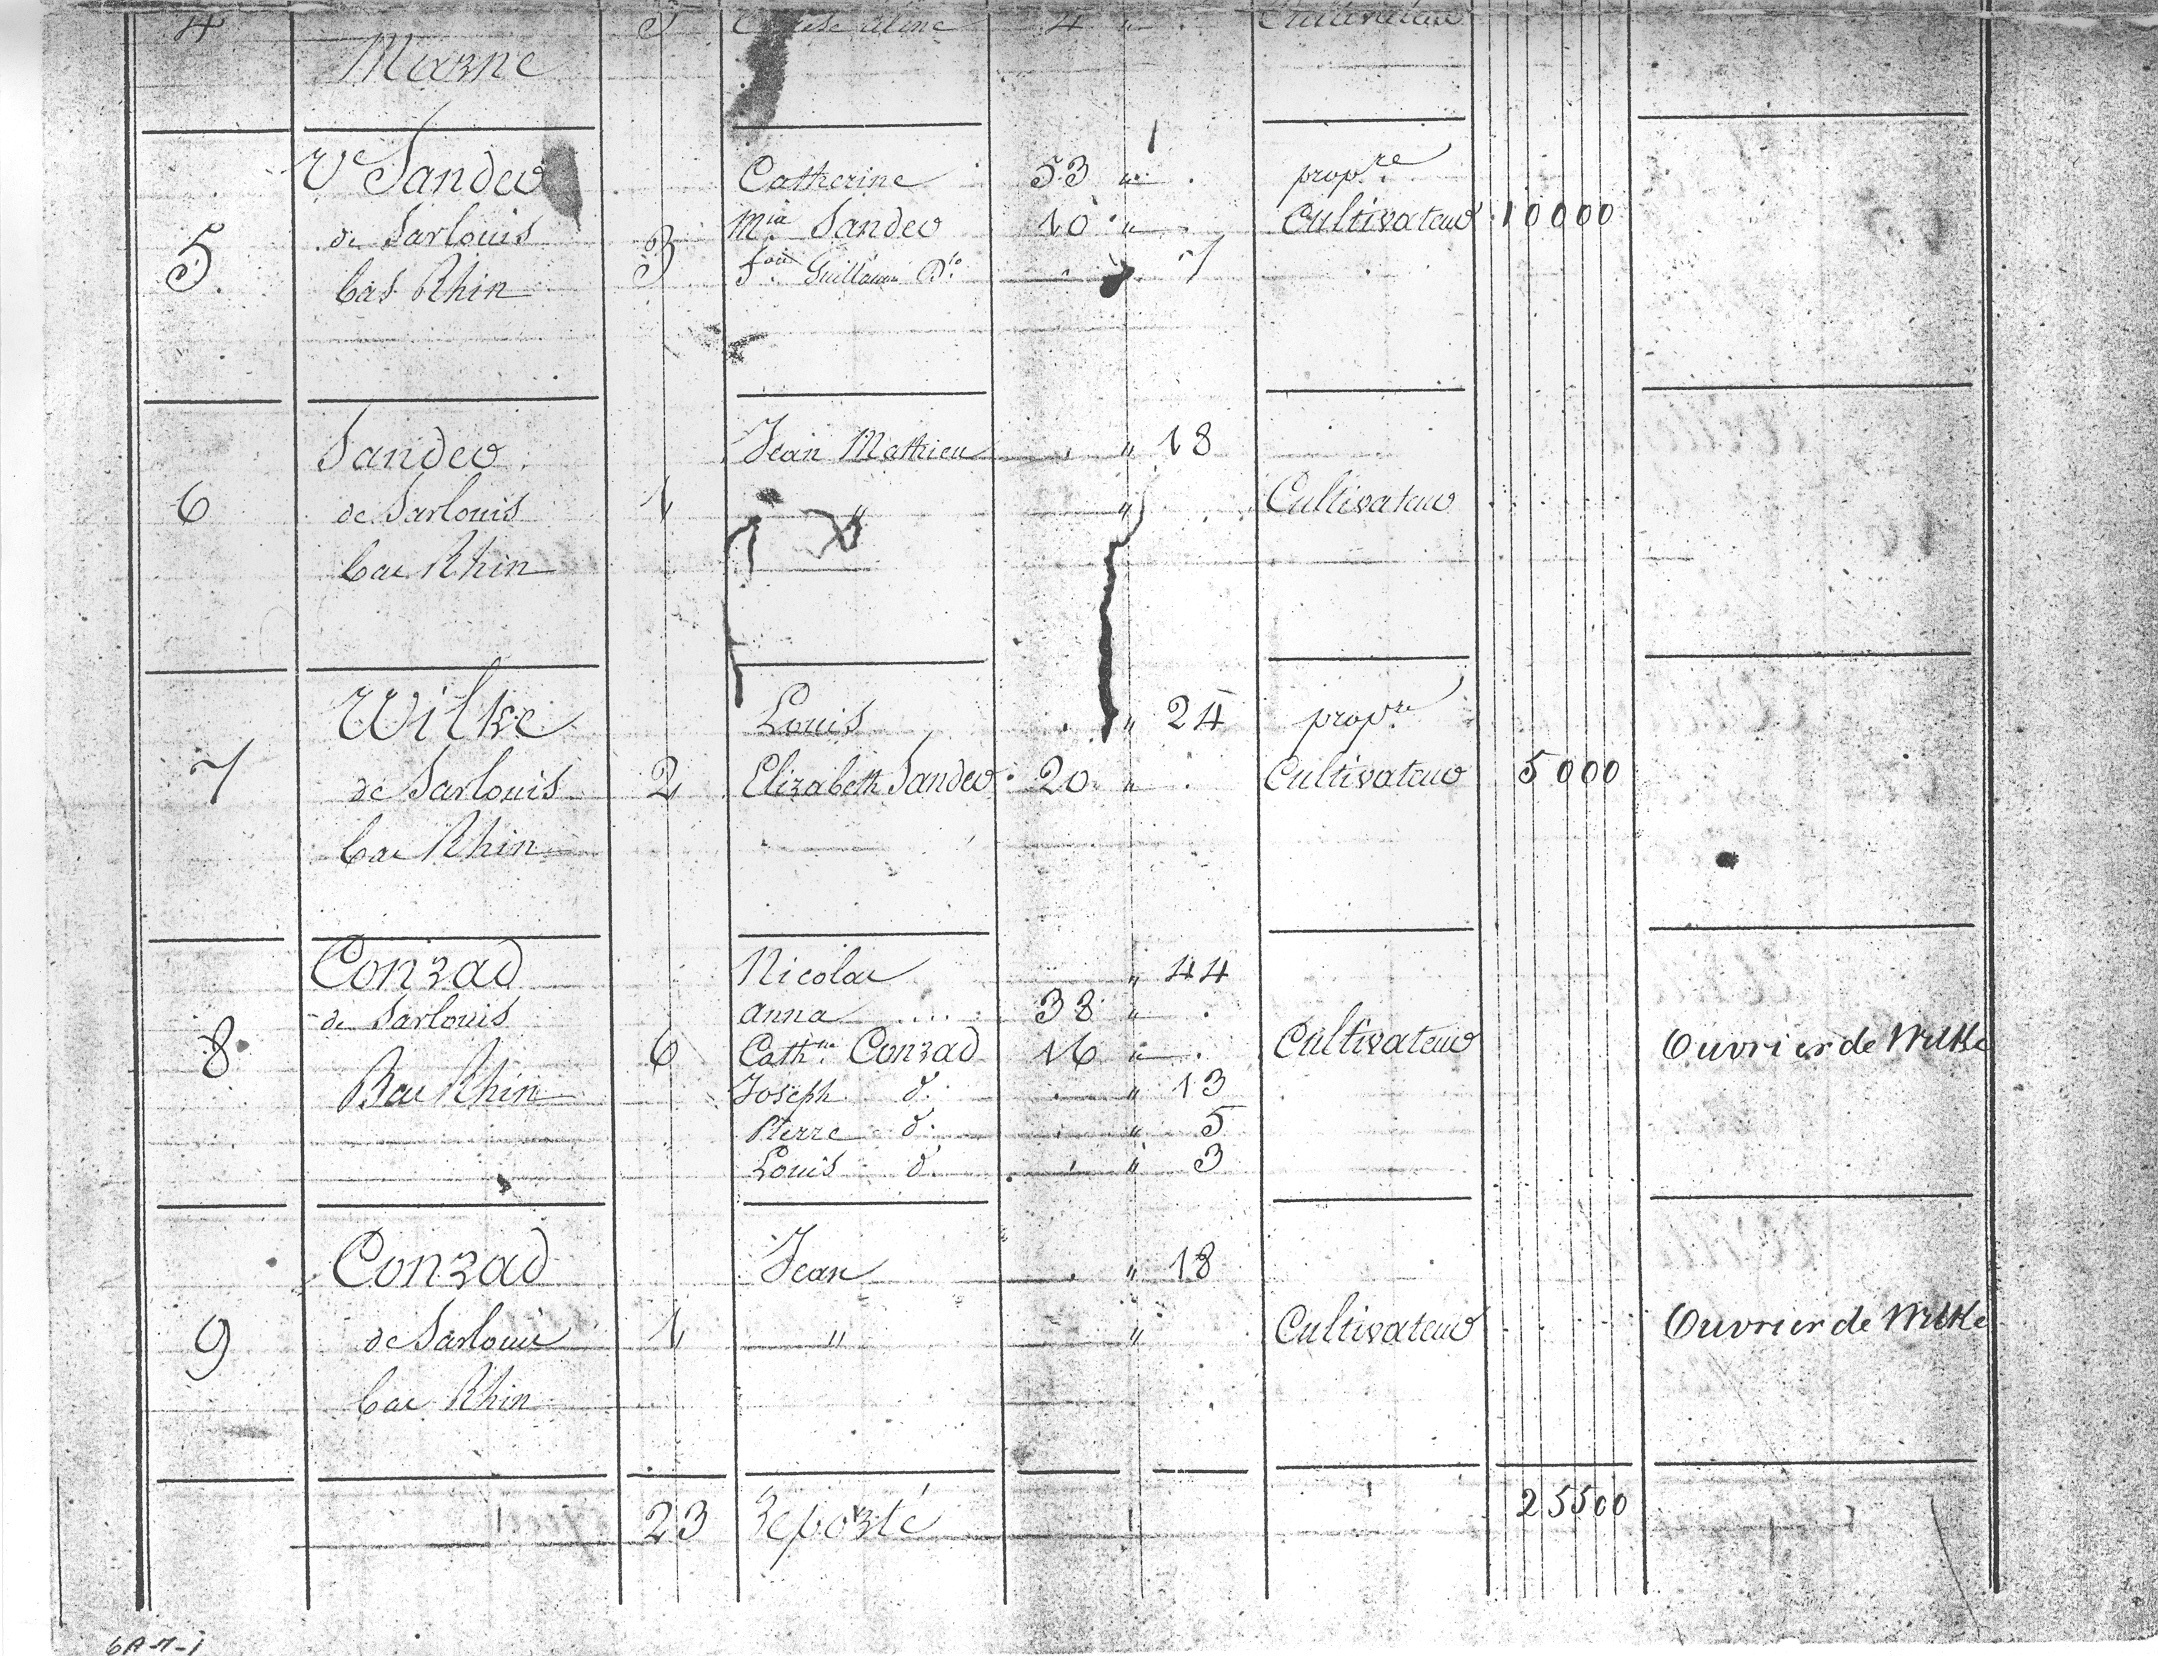 4 5 4 " Cultivateur
Marne
Ve Sander Catherine 53 " propre
de Sarlouis Mia Sander 10 " Cultivateur 10000
5 3 Guillaume Do " 7
bas Rhin
Sander Jean Mathieu " 18
6 de Sarlouis 1 " " Cultivateur
bas Rhin
Wilke Louis " 24 propre
7 de Sarlouis 2 Elizabeth Sander 20 " Cultivateur 5000
bas Rhin
Conrad Nicolas " 44
de Sarlouis anna .... 38 "
8 6 Cathne Conrad 16 " Cultivateur Ouvrier de Wilke
Bas Rhin Joseph d. " 13
Pierre d. " 5
Louis d. " 3
Conrad Jean " 18
9 de Sarlouis 1 " " Cultivateur Ouvrier de Wilke
bas Rhin
23 reporté 25500
6A-7-1